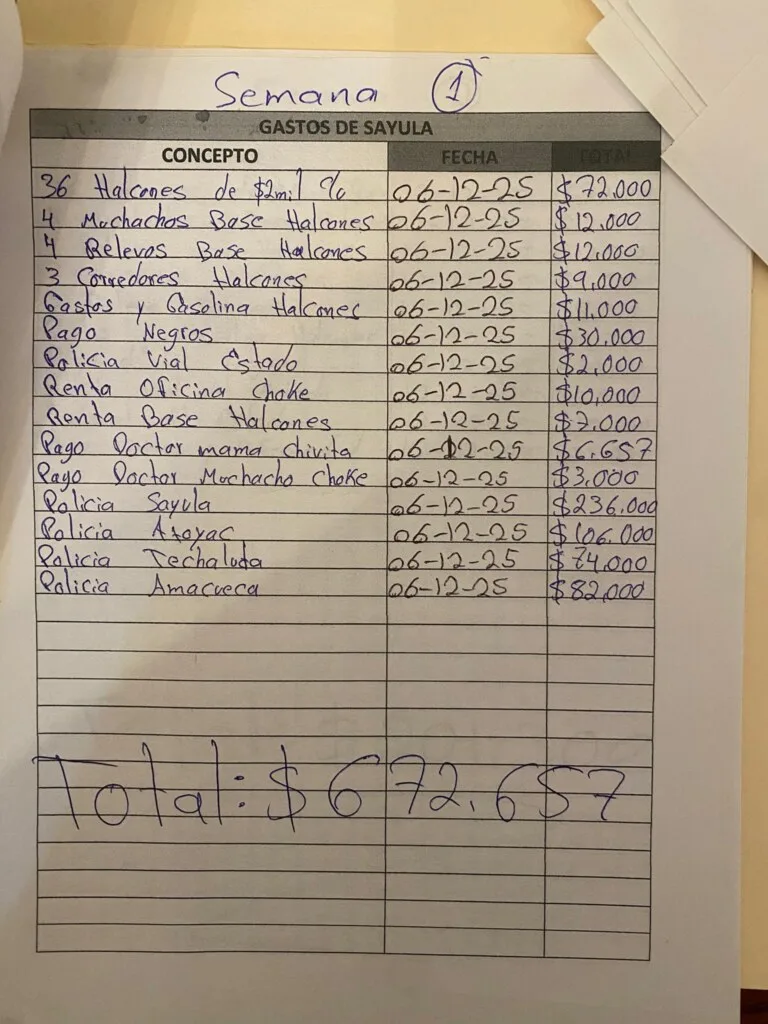 Semana 1
GASTOS DE SAYULA
CONCEPTO FECHA TOTAL
36 Halcones de $2mil % 06-12-25 $72.000
4 Muchachos Base Halcones 06-12-25 $12.000
4 Relevos Base Halcones 06-12-25 $12.000
3 Corredores Halcones 06-12-25 $9.000
Gastos y Gasolina Halcones 06-12-25 $11.000
Pago Negros 06-12-25 $30.000
Policia Vial Estado 06-12-25 $2.000
Renta Oficina Choke 06-12-25 $10.000
Renta Base Halcones 06-12-25 $7.000
Pago Doctor mama chivita 06-12-25 $6.657
Pago Doctor Muchacho Choke 06-12-25 $3.000
Policia Sayula 06-12-25 $236.000
Policia Atoyac 06-12-25 $106.000
Policia Techaluda 06-12-25 $74.000
Policia Amacueca 06-12-25 $82.000
Total: $672.657